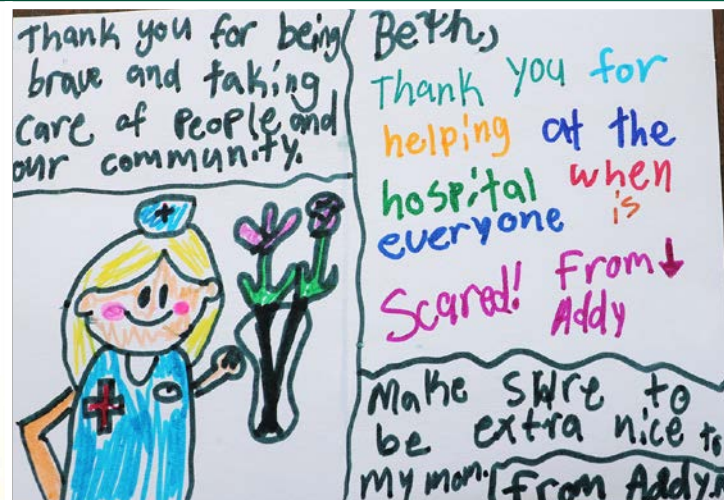 Thank you for being
brave and taking
care of People and
our community.
Beth,
Thank you for
helping at the
hospital when
everyone is
Scared! From
Addy
Make sure to
be extra nice to
my mom.
From Addy